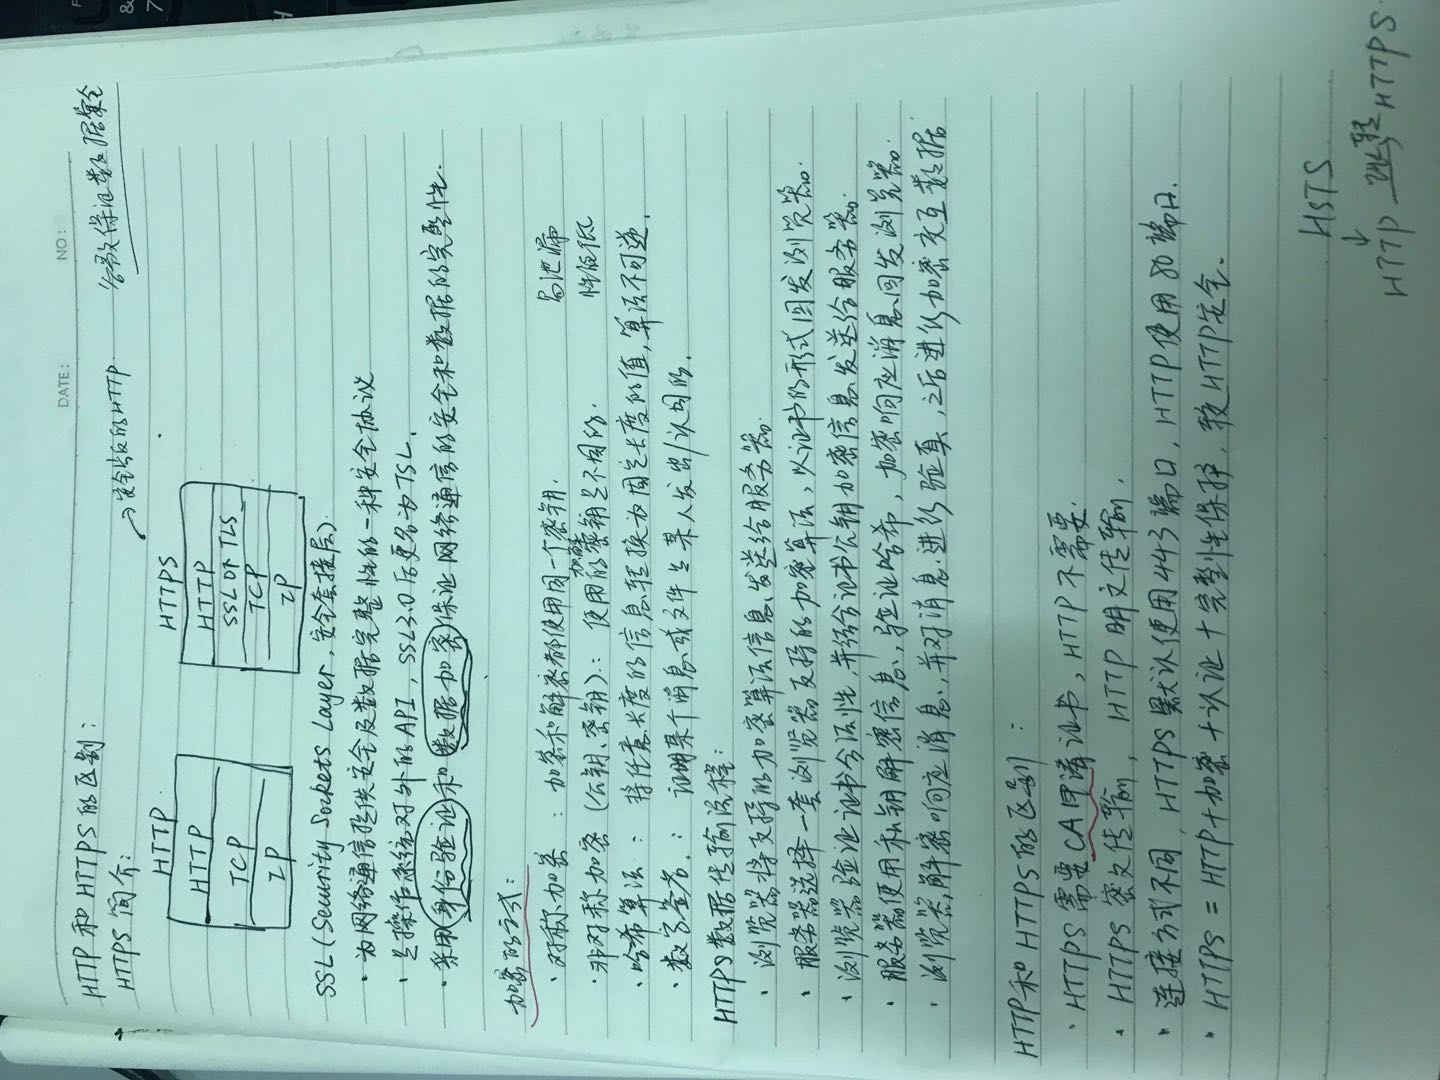 DATE:
NO:
HTTP 和 HTTPS 的区别:
HTTPS 简介:
→安全版的HTTP
有效保证数据安全
HTTP
HTTP
TCP
IP
HTTPS
HTTP
SSL or TLS
TCP
IP
SSL (Security Sockets Layer, 安全套接层)
· 为网络通信提供安全及数据完整性的一种安全协议
· 是操作系统对外的API, SSL3.0后更名为TSL.
· 采用身份验证和数据加密保证网络通信的安全和数据的完整性.
加密的方式:
· 对称加密 : 加密和解密都使用同一个密钥. 易泄漏
· 非对称加密 (公钥、密钥): 使用的密钥是不同的. 性能低
加解
· 哈希算法 : 将任意长度的信息转换为固定长度的值, 算法不可逆.
· 数字签名 : 证明某个消息或文件是某人发出/认同的.
HTTPS数据传输流程:
· 浏览器将支持的加密算法信息发送给服务器.
· 服务器选择一套浏览器支持的加密算法, 以证书的形式回发浏览器.
· 浏览器验证证书合法性, 并结合证书公钥加密信息发送给服务器.
· 服务器使用私钥解密信息, 验证哈希, 加密响应消息回发浏览器.
· 浏览器解密响应消息, 并对消息进行验真, 之后进行加密交互数据.
HTTP和HTTPS的区别 :
· HTTPS 需要 CA申请证书, HTTP 不需要.
· HTTPS 密文传输, HTTP 明文传输.
· 连接方式不同, HTTPS 默认使用 443 端口, HTTP使用 80 端口.
· HTTPS = HTTP+加密+认证+完整性保护, 较 HTTP安全.
HSTS
↓
HTTP 跳转 HTTPS.